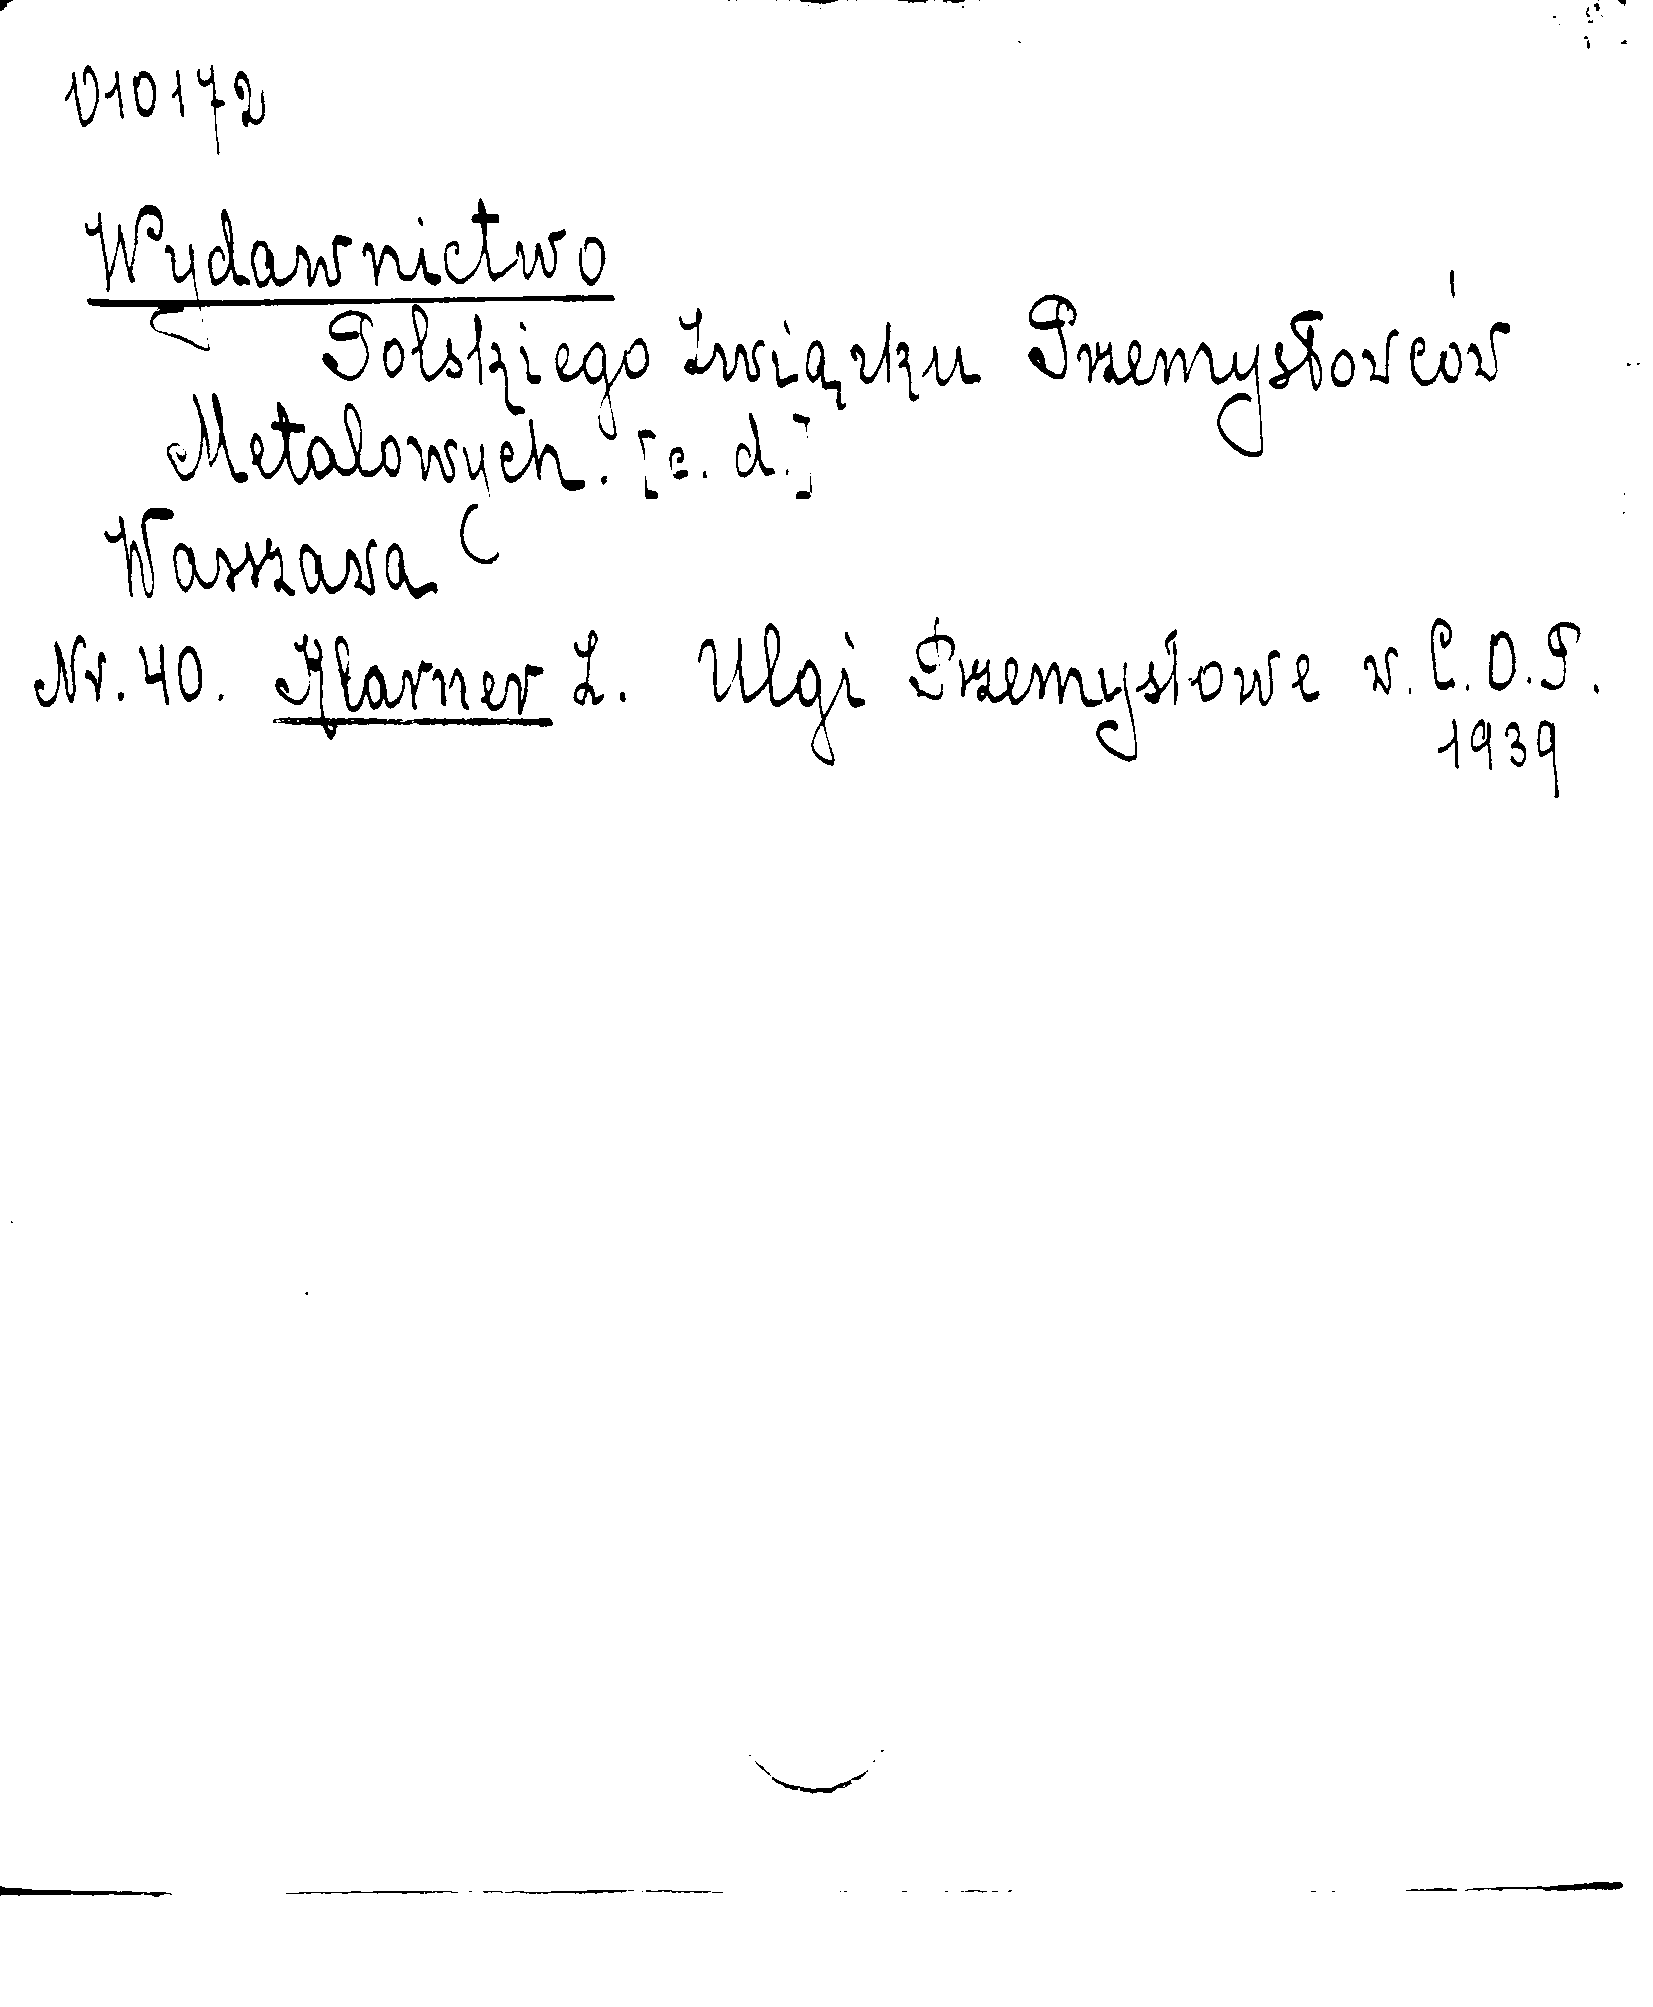 V10172
Wydawnictwo
Polskiego Związku Przemysłowców
Metalowych. [c. d.]
Warszawa
Nr. 40. Klarner Z. Ulgi Przemysłowe w. C. O. P.
1939